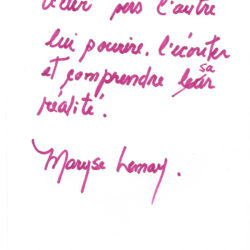 vers l'autre
lui sourire, l'écouter
et comprendre sa
réalité.
Maryse Lemay.